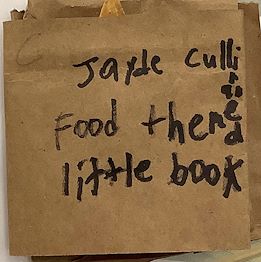 Jayde Culli
Food thened
little book